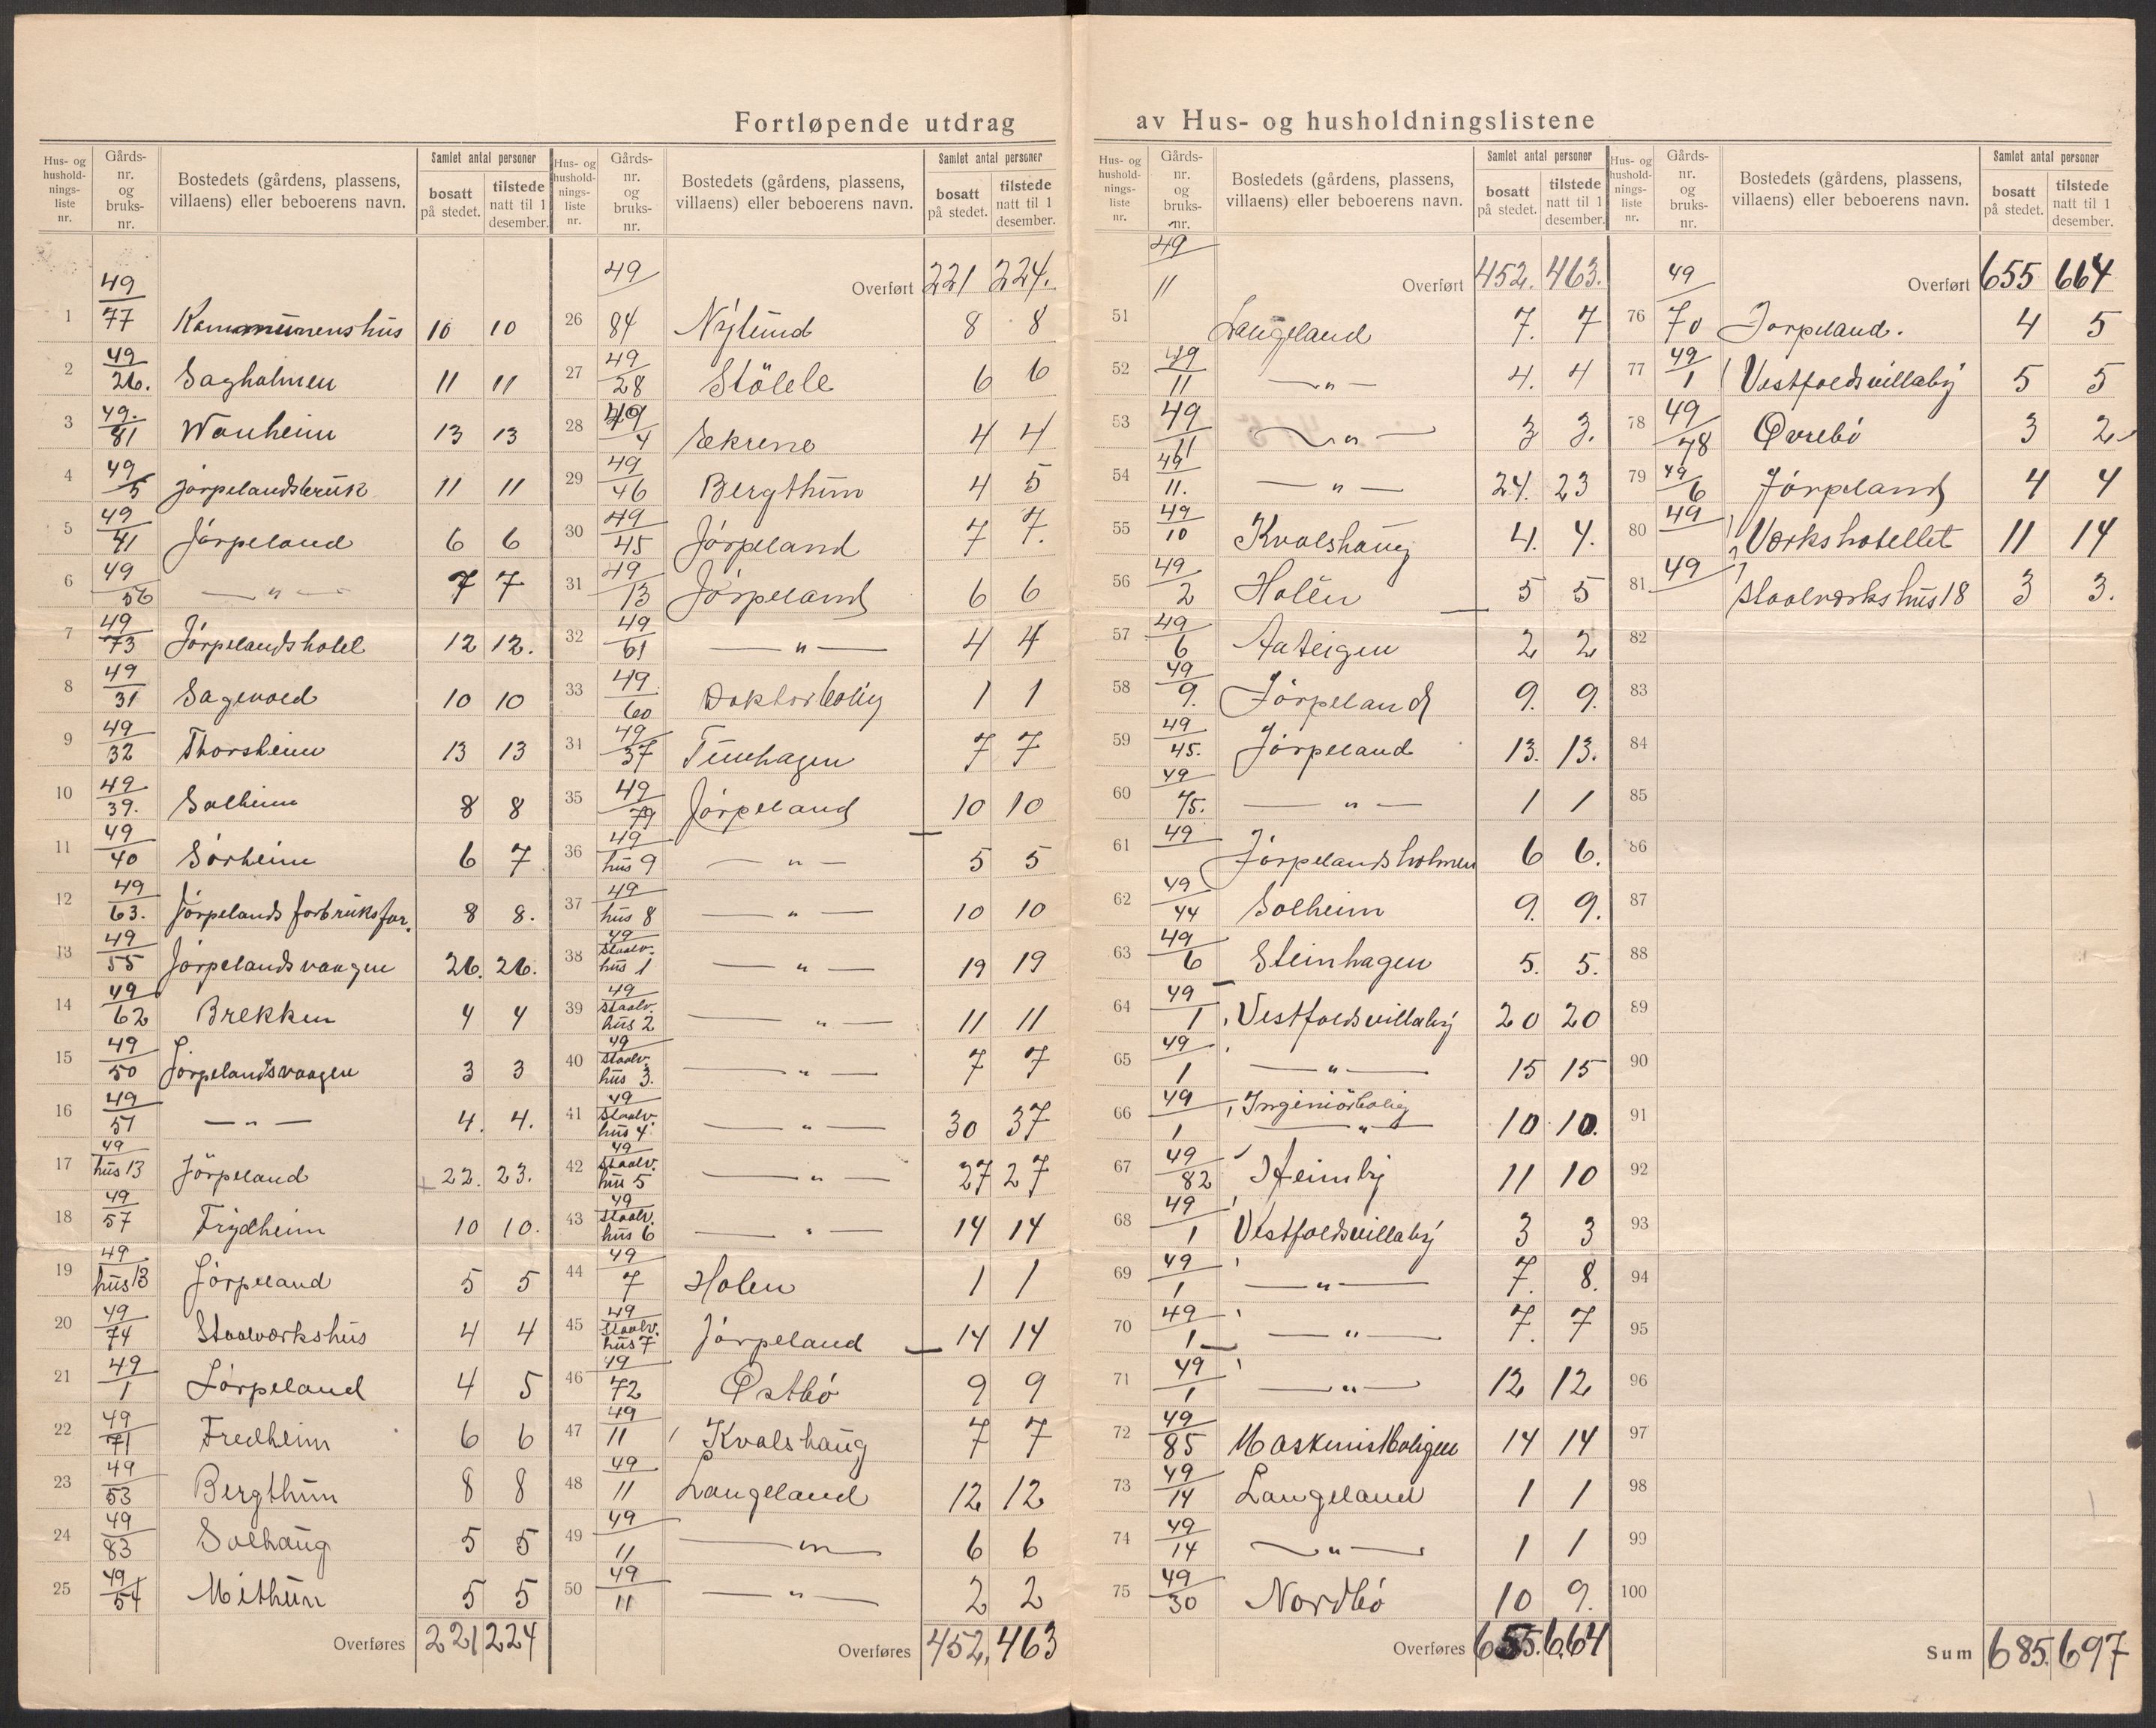 Fortløpende utdrag av Hus- og husholdningslistene
Hus- og husholdnings-liste nr. | Gårds-nr. og bruks-nr. | Bostedets (gårdens, plassens, villaens) eller beboerens navn. | Samlet antal personer | bosatt på stedet. | tilstede natt til 1 desember.
1 49/77 Kommunenshus 10 10
2 49/26. Sagholmen 11 11
3 49./81 Wauheim 13 13
4 49/5 Jørpelandsbruk 11 11
5 49/41 Jørpeland 6 6
6 49/56 — " — 7 7
7 49/73 Jørpelandshotel 12 12.
8 49/31 Sagevold 10 10
9 49/32 Thorsheim 13 13
10 49/39. Solheim 8 8
11 49/40 Sørheim 6 7
12 49/63. Jørpelands forbruksfor. 8 8.
13 49/55 Jørpelandsvaagen 26. 26.
14 49/62 Brekken 4 4
15 49/50 Jørpelandsvaagen 3 3
16 49/51 — " — 4. 4.
17 49/hus 13 Jørpeland 22. 23.
18 49/57 Frydheim 10 10.
19 49/hus 13 Jørpeland 5 5
20 49/74 Staalværkshus 4 4
21 49/1 Jørpeland 4 5
22 49/71 Fredheim 6 6
23 49/53 Bergthun 8 8
24 49/83 Solhaug 5 5
25 49/54 Mithun 5 5
Overføres 221 224
Hus- og husholdnings-liste nr. | Gårds-nr. og bruks-nr. | Bostedets (gårdens, plassens, villaens) eller beboerens navn. | Samlet antal personer | bosatt på stedet. | tilstede natt til 1 desember.
Overført 221 224.
26 49/84 Nylund 8 8
27 49/28 Stölele 6 6
28 49/4 Sekrene 4 4
29 49/46 Bergthun 4 5
30 49/45 Jørpeland 7 7.
31 49/13 Jørpeland 6 6
32 49/61 — " — 4 4
33 49/60 Doktorbolig 1 1
34 49/37 Tunhagen 7 7
35 49/79 Jørpeland 10 10
36 49/hus 9 — " — 5 5
37 49/hus 8 — " — 10 10
38 49/Staalv. hus 1 — " — 19 19
39 49/Staalv. hus 2 — " — 11 11
40 49/Staalv. hus 3. — " — 7 7
41 49/Staalv. hus 4 — " — 30 37
42 49/Staalv. hus 5 — " — 27 27
43 49/Staalv. hus 6 — " — 14 14
44 49/7 Holen 1 1
45 49/Staalv. hus 7 Jørpeland 14 14
46 49/72 Østbø 9 9
47 49/11 Kvalshaug 7 7
48 49/11 Langeland 12 12
49 49/11 — " — 6 6
50 49/11 — " — 2 2
Overføres 452. 463
Hus- og husholdnings-liste nr. | Gårds-nr. og bruks-nr. | Bostedets (gårdens, plassens, villaens) eller beboerens navn. | Samlet antal personer | bosatt på stedet. | tilstede natt til 1 desember.
Overført 452. 463.
51 49/11 Langeland 7. 7
52 49/11 — " — 4. 4
53 49/11 — " — 3 3.
54 49/11. — " — 24. 23
55 49/10 Kvalshaug 4. 4.
56 49/2 Holen 5 5
57 49/6 Aateigen 2 2
58 49/9. Jørpeland 9. 9.
59 49/45. Jørpeland 13. 13.
60 49/75. — " — 1 1
61 49 Jørpelandsholmen 6 6.
62 49/44 Solheim 9. 9.
63 49/6 Steinhagen 5. 5.
64 49/1 Vestfoldsvillaby 20 20
65 49/1 — " — 15 15
66 49/1 Ingeniörbolig — " — 10 10.
67 49/82 Heimly 11 10
68 49/1 Vestfoldsvillaby 3 3
69 49/1 — " — 7. 8.
70 49/1 — " — 7. 7
71 49/1 — " — 12 12
72 49/85 Maskinistboligen 14 14
73 49/14 Langeland 1 1
74 49/14 — " — 1 1
75 49/30 Nordbø 10 9.
Overføres 655. 664
Hus- og husholdnings-liste nr. | Gårds-nr. og bruks-nr. | Bostedets (gårdens, plassens, villaens) eller beboerens navn. | Samlet antal personer | bosatt på stedet. | tilstede natt til 1 desember.
Overført 655 664
76 49/70 Jorpeland. 4 5
77 49/1 Vestfoldsvillaby 5 5
78 49/78 Øvrebø 3 2
79 49/6 Jørpeland 4 4
80 49 Værkshotellet 11 14
81 49 Staalværkshus 18 3 3.
82
83
84
85
86
87
88
89
90
91
92
93
94
95
96
97
98
99
100
Sum 685. 697